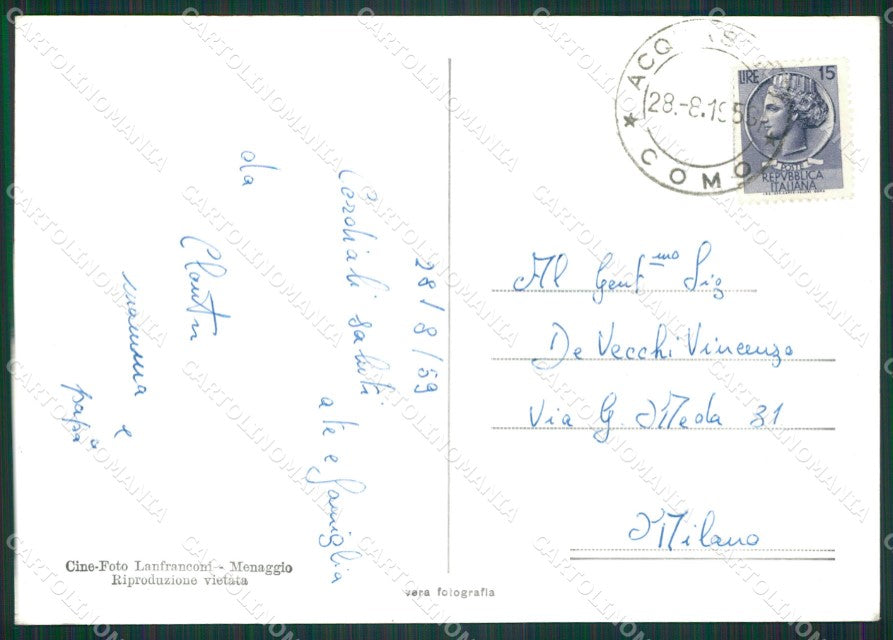 28/8/59
Cordiali saluti
a te e famiglia
da
mamma e
papà
Cine-Foto Lanfranconi - Menaggio
Riproduzione vietata
vera fotografia
ACQ
28.-8.195
COMO
LIRE 15
POSTE
REPVBBLICA
ITALIANA
Al Gent.mo Sig
De Vecchi Vincenzo
Via G. Meda 31
Milano
CARTOLINOMANIA